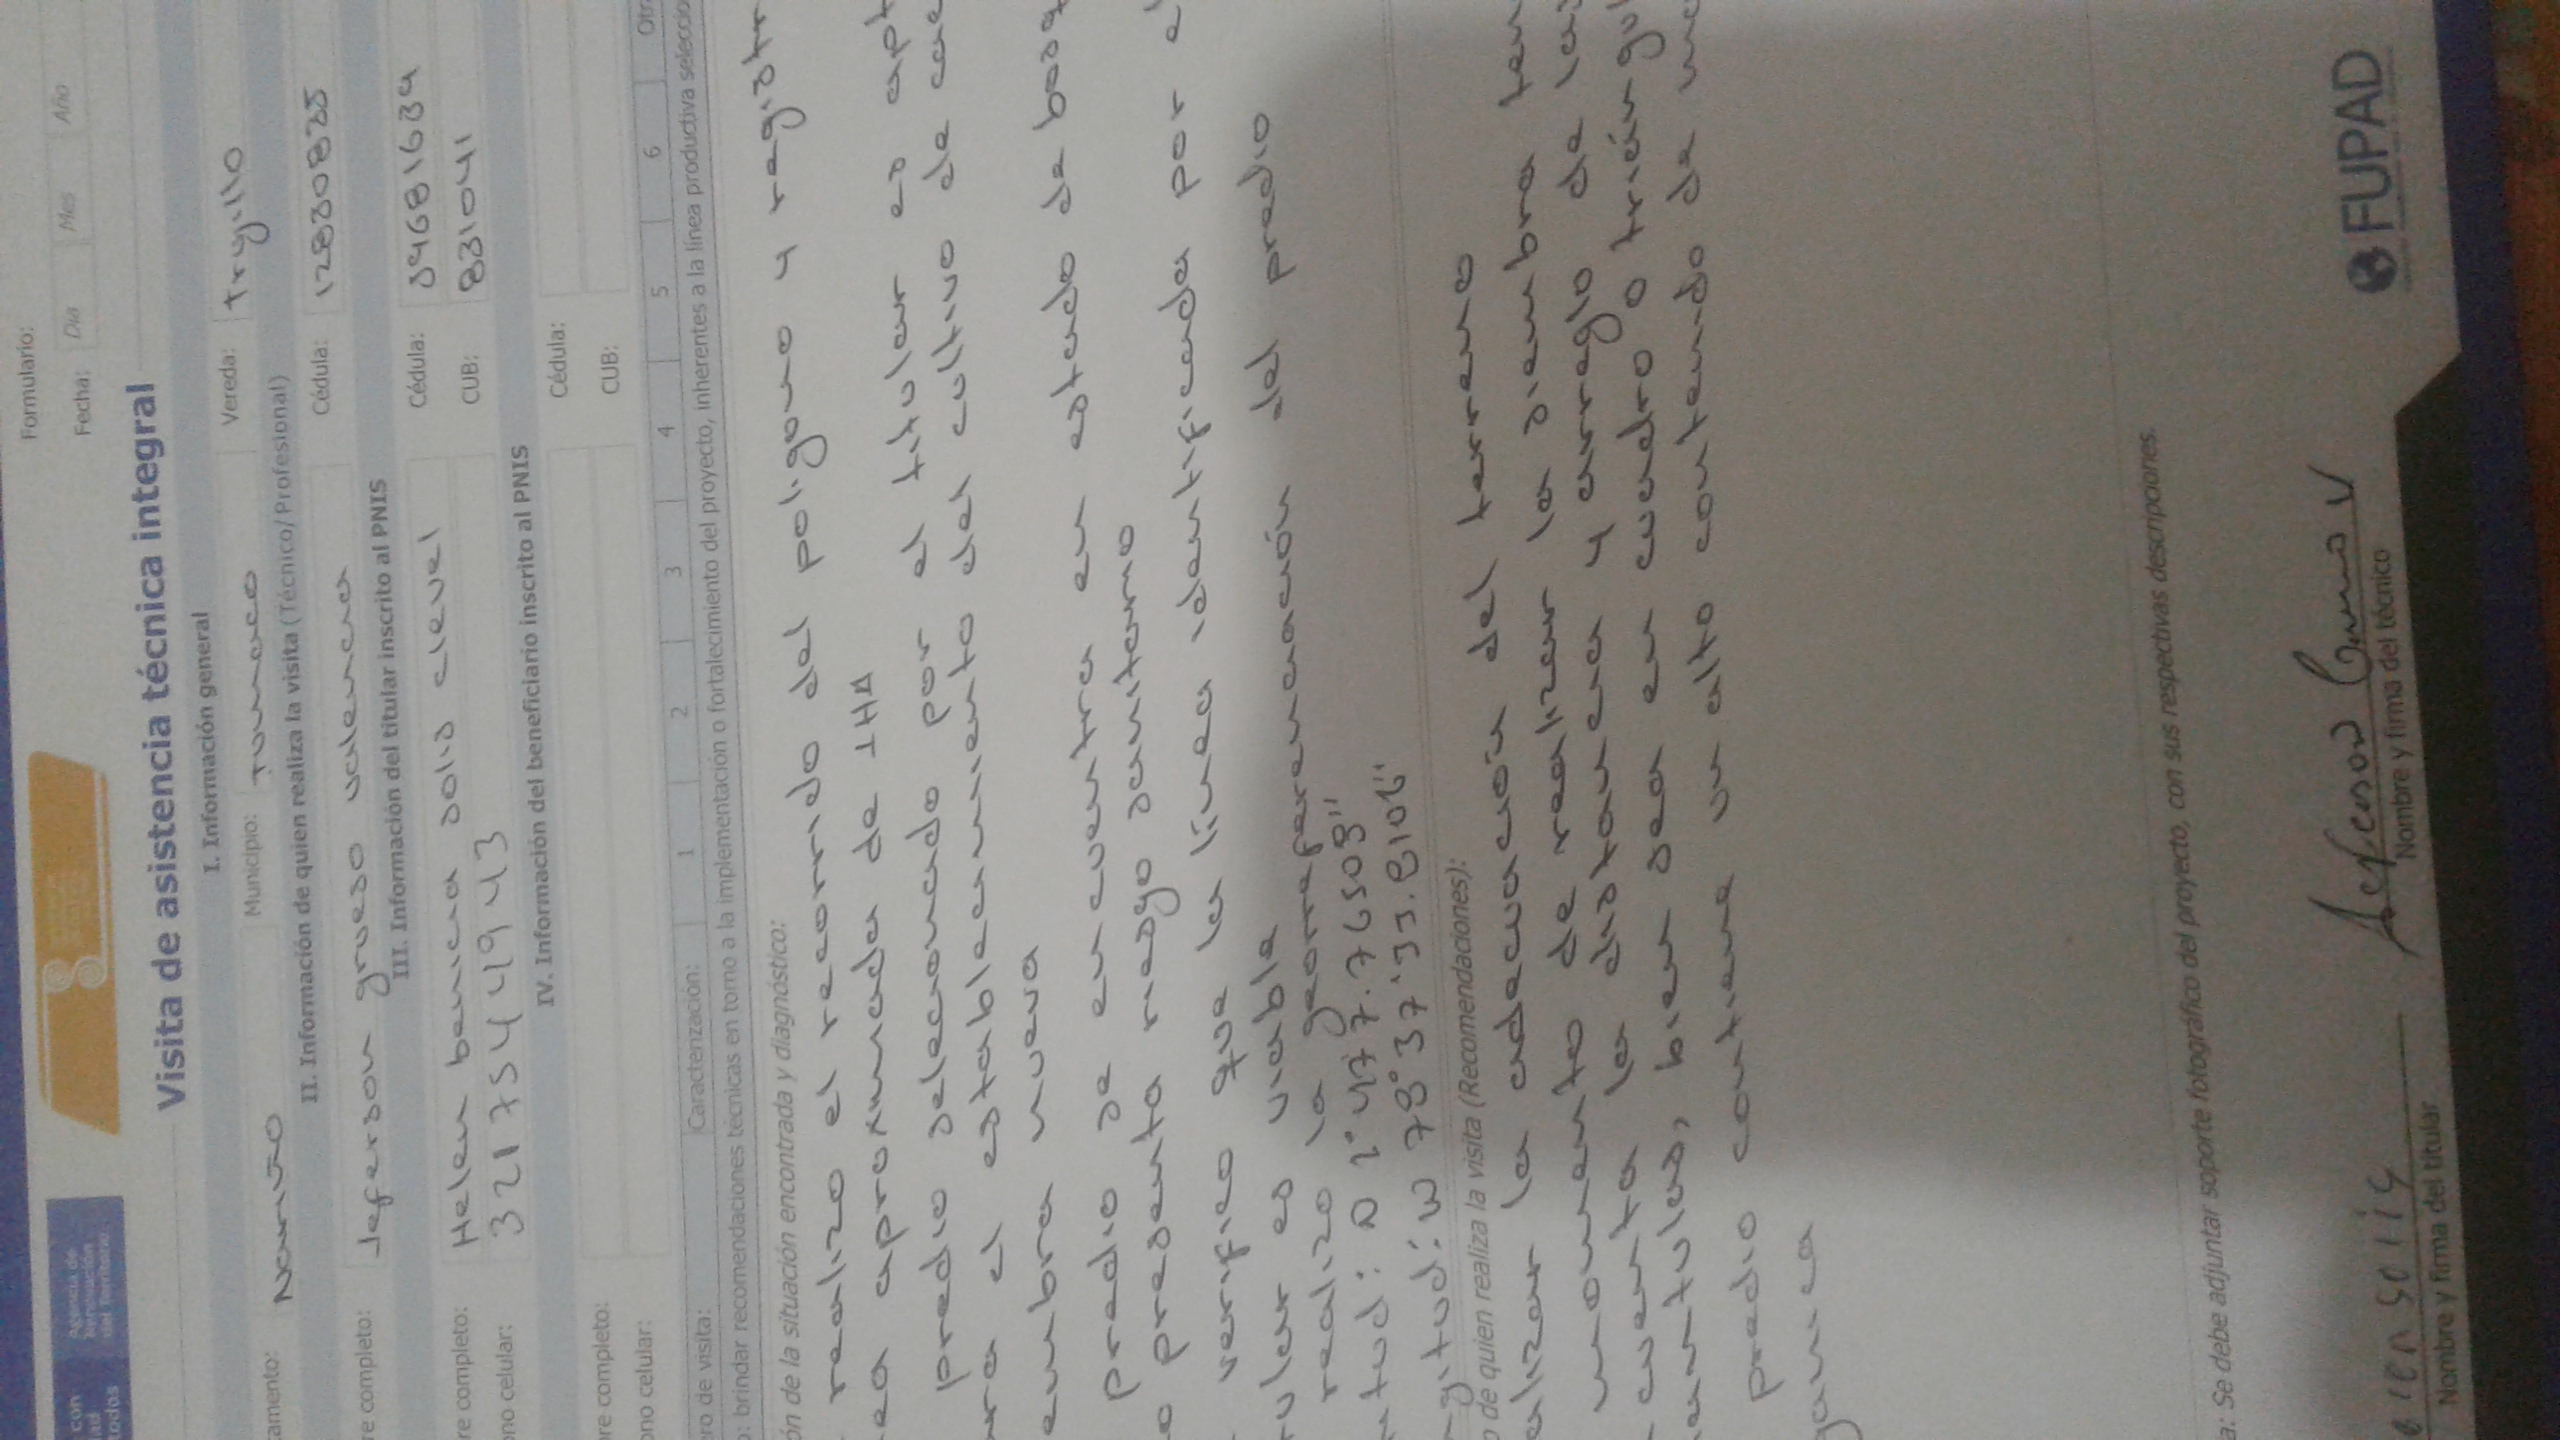 Formulario:
Fecha: Día Mes Año
con
dad
todos
Agencia de
Renovación
del Territorio
Visita de asistencia técnica integral
I. Información general
tamento: Nariño Municipio: tumaco Vereda: trujillo
II. Información de quien realiza la visita (Técnico/ Profesional)
re completo: Jeferson grueso valencia Cédula:
III. Información del titular inscrito al PNIS
re completo: Helen bencia solis clevel Cédula:
ono celular: 3217544943 CUB: 831041
IV. Información del beneficiario inscrito al PNIS
re completo: Cédula:
ono celular: CUB:
ero de visita: Caracterización: 1 2 3 4 5 6 Otra
o: brindar recomendaciones técnicas en torno a la implementación o fortalecimiento del proyecto, inherentes a la línea productiva seleccio
ón de la situación encontrada y diagnóstico:
realizo el recorrido del poligono y registr
ea aproximada de 1HA
predio selecionado por el titular es apt
ra el establecimiento del cultivo de cane
embra nueva
predio se encuentra en estado de bosq
o presenta riesgo sanitario
verifico que la linea identificada por el
tular es viable
realizo la georreferenciación del predio
titud: N
ngitud: W
o de quien realiza la visita (Recomendaciones):
ealizar la adecuación del terreno
momento de realizar la siembra ten
cuenta la distancia y arreglo de las
lantulas, bien sea en cuadro o triángul
predio contiene un alto contenido de ma
ganica
a: Se debe adjuntar soporte fotográfico del proyecto, con sus respectivas descripciones.
Nombre y firma del titular
Nombre y firma del técnico
FUPAD